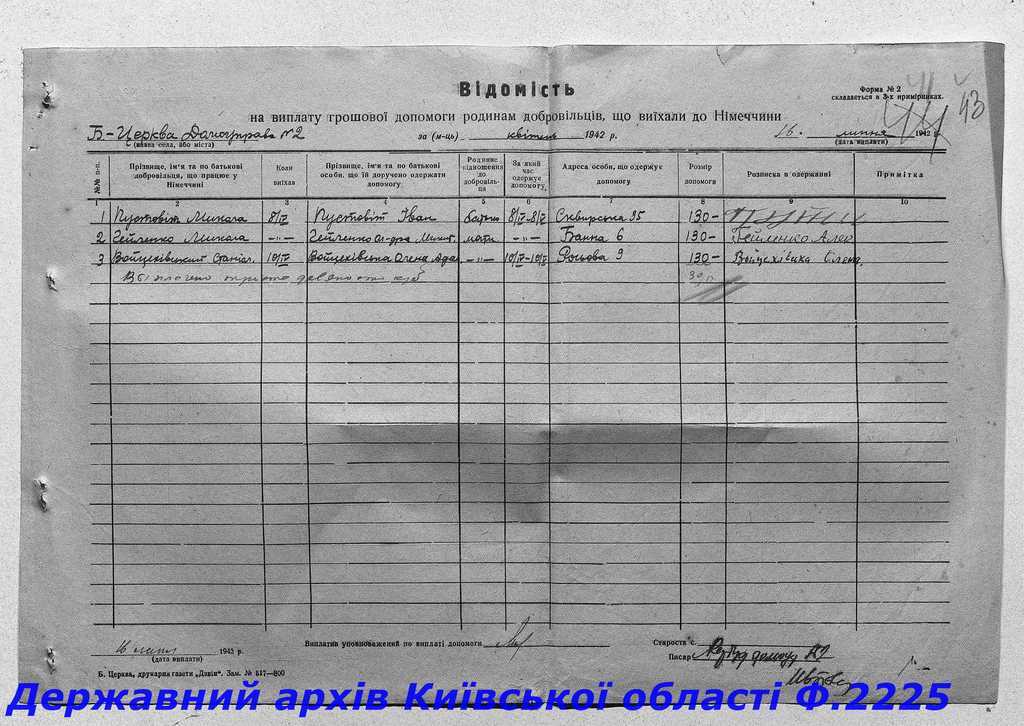 Відомість
Форма № 2
складається в 3-х примірниках.
на виплату грошової допомоги родинам добровільців, що виїхали до Німеччини
43
Б-Церква Домоуправа №2 за (м-ць) квітень 1942 р. 16. липня 1942 р.
(назва села, або міста) (дата виплати)
№№ п-п. Прізвище, ім'я та по батькові добровільця, що працює у Німеччині Коли виїхав Прізвище, ім'я та по батькові особи, що їй доручено одержати допомогу. Родинне відношення до добровільця За який час одержує допомогу, Адреса особи, що одержує допомогу Розмір допомоги Розписка в одержанні Примітка
1 2 3 4 5 6 7 8 9 10
1 Пустовіт Микола 8/IV Пустовіт Іван батько 8/IV-8/V Сквирська 95 130-
2 Микола -"- мати -"- Банна 6 130-
3 Войцехівський Станісл. 10/IV Войцехівська Олена Адам -"- 10/IV-10/V Росьова 9 130- Войцехівська Олена
Виплачено триста дев'яносто крб
16 липня 1942 р. Виплатив уповноважений по виплаті допомоги Староста с.
(дата виплати) Писар
Б. Церква, друкарня газети „Дзвін". Зам. № 517—800
Державний архів Київської області Ф.2225